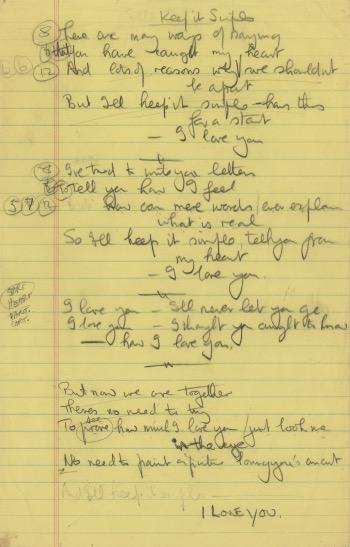 Keep it Simple
8 There are many ways of saying
that you have caught my heart
12 And lots of reasons why we shouldnt
be apart
But I'll keep it simple - has this
for a start
- I love you
8 I've tried to write you letters
To tell you how I feel
5 7 12 how can mere words ever explain
what is real
So I'll keep it simple, tell you from
my heart
- I love you.
START
HEART
PART.
I love you - I'll never let you go
I love you - I thought you ought to know
- how I love you.
But now we are together
Theres no need to try
To prove how much I love you / just look me
see
in the eye
No need to paint a picture
And I'll keep it simple -
I LOVE YOU.